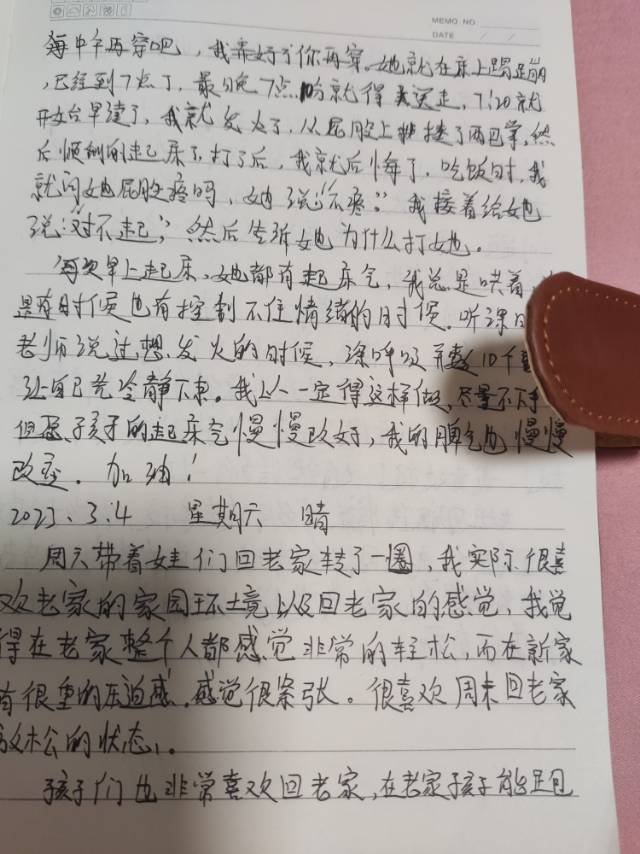 MEMO NO.
DATE / /
再穿吧，我弄好了你再穿。她就在床上
，已经到7点了，最晚7点10分就得送走，7:20就
开始早读了，我就发火了，从屁股上搂了两巴掌，然
后顺利的起床了。打了后，我就后悔了，吃饭时，我
就问她屁股疼吗，她说:“不疼。”我接着给她
说:“对不起”，然后告诉她为什么打她。
每次早上起床，她都有起床气，我总是哄着，
是有时候也有控制不住情绪的时候。听课
老师说过想发火的时候，深呼吸数10个数
让自己先冷静下来。我以一定得这样做，尽量不
但愿孩子的起床气慢慢改好，我的脾气也慢慢
改变。加油！
2023.3.4 星期六 晴
周六带着娃们回老家转了一圈，我实际很喜
欢老家的家园环境以及回老家的感觉，我觉
得在老家整个人都感觉非常的轻松，而在新家
有很重的压迫感，感觉很紧张。很喜欢周末回老家
放松的状态。
孩子们也非常喜欢回老家，在老家孩子能